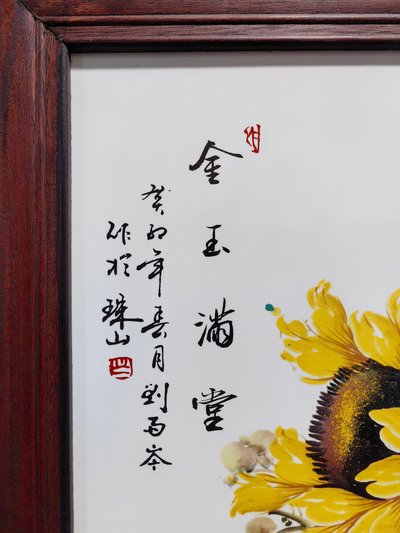 金玉满堂
癸卯年春月刘雨岑
作於珠山